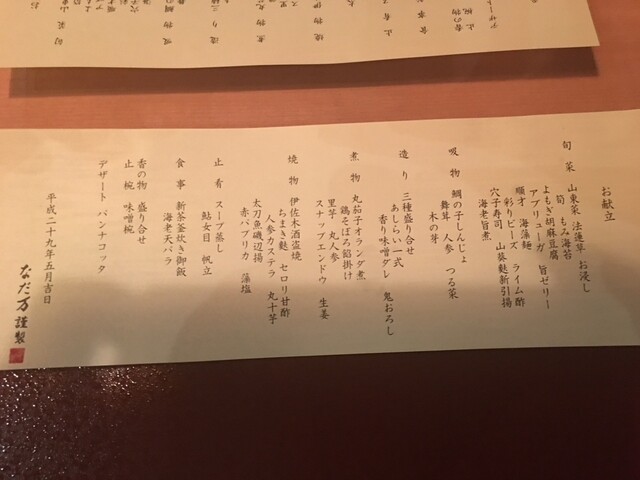 お献立
旬菜 山東菜 法蓮草 お浸し
筍 もみ海苔
よもぎ胡麻豆腐
アブリューガ 旨ゼリー
順才 海藻麺
彩りビーズ ライム酢
穴子寿司 山葵麩新引揚
海老旨煮
吸物 鯛の子しんじょ
舞茸 人参 つる菜
木の芽
造り 三種盛り合せ
あしらい一式
香り味噌ダレ 鬼おろし
煮物 丸茄子オランダ煮
鶏そぼろ餡掛け
里芋 丸人参
スナップエンドウ 生姜
焼物 伊佐木酒盗焼
ちまき麩 セロリ甘酢
人参カステラ 丸十芋
太刀魚磯辺揚
赤パプリカ 藻塩
止肴 スープ蒸し
鮎女目 帆立
食事 新茶釜炊き御飯
海老天バラ
香の物 盛り合せ
止椀 味噌椀
デザート パンナコッタ
平成二十九年五月吉日
なだ万 謹製